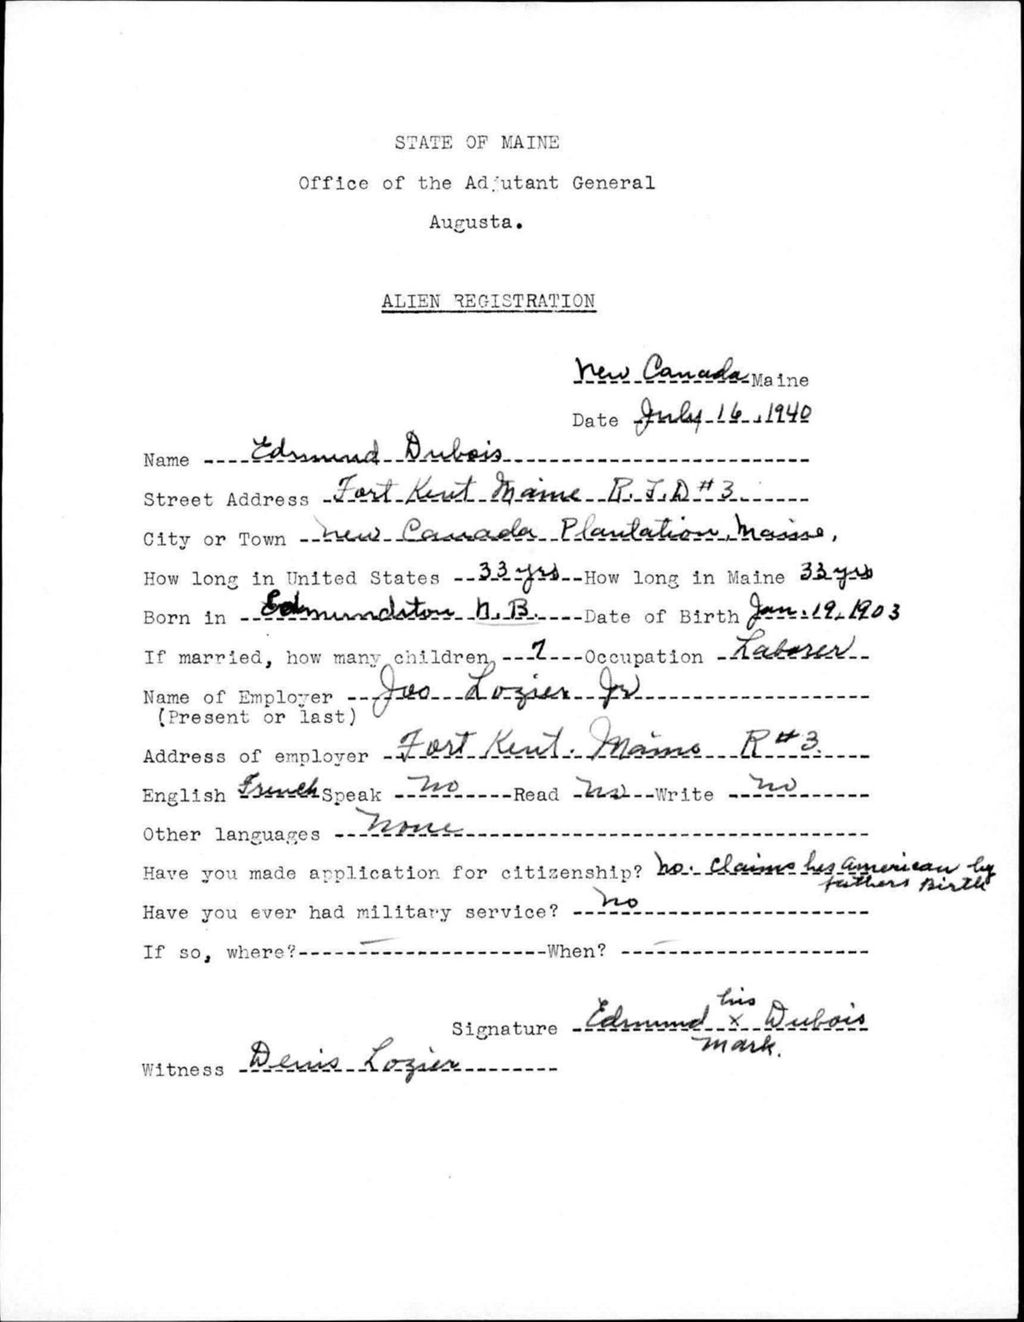 STATE OF MAINE
Office of the Adjutant General
Augusta.
ALIEN REGISTRATION
New Canada Maine
Date July 16, 1940
Name Edmund Dubois
Street Address Fort Kent Maine R.F.D #3.
City or Town New Canada Plantation, Maine,
How long in United States 33 yrs How long in Maine 33 yrs
Born in Edmundston N.B. Date of Birth Jan. 19, 1903
If married, how many children 7 Occupation Laborer
Name of Employer Joe Lozier Jr
(Present or last)
Address of employer Fort Kent. Maine R #3.
English French Speak No Read No Write No
Other languages None
Have you made application for citizenship? No. Claims hes American by
fathers Birth
Have you ever had military service? No
If so, where? — When? —
his
Signature Edmund x Dubois
mark.
Witness Denis Lozier